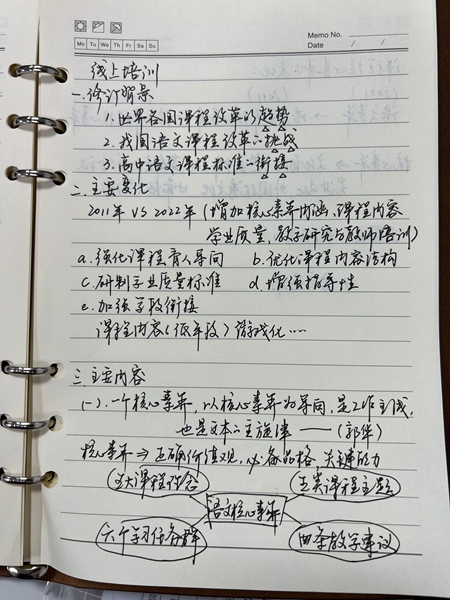 Memo No.
Mo Tu We Th Fr Sa Su
Date / /
线上培训
一、修订背景
1. 世界各国课程改革的趋势
2. 我国语文课程改革的挑战
3. 高中语文课程标准的衔接
二、主要变化
2011年 VS 2022年 (增加核心素养内涵、课程内容
学业质量、教学研究与教师培训)
a. 强化课程育人导向 b. 优化课程内容结构
c. 研制学业质量标准 d. 增强指导性
e. 加强学段衔接
课程内容(低年段) 游戏化……
三、主要内容
(一). 一个核心素养, 以核心素养为导向, 是工作主线,
也是文本的主旋律 ——(郭华)
核心素养⇒正确价值观, 必备品格, 关键能力
五大课程理念
三类课程主题
语文核心素养
六个学习任务群
四条教学建议